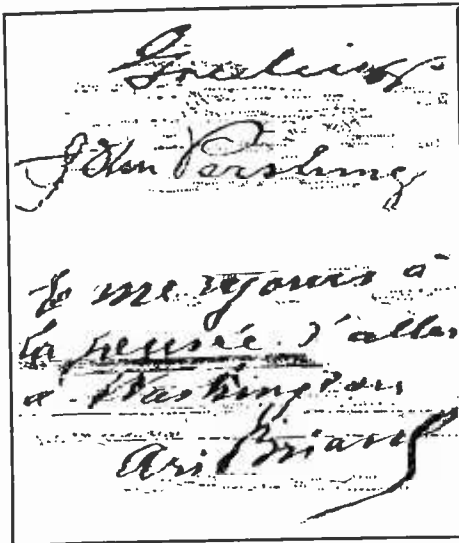 Greetings
John Pershing
Je me réjouis à
la pensée d'aller
à Washington
Ari Briand